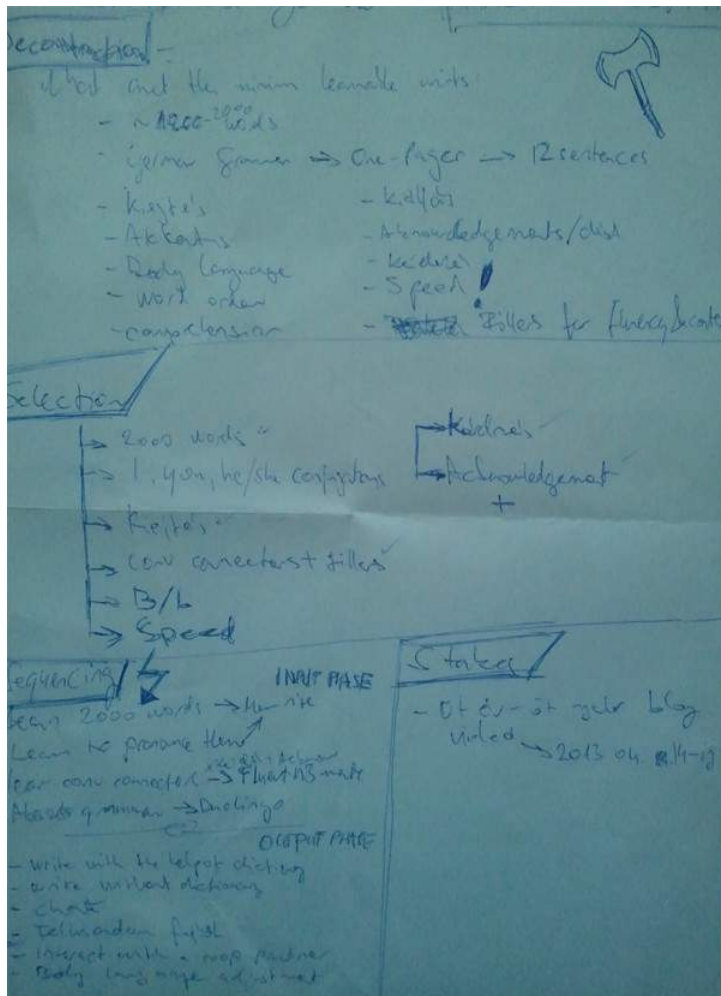 Deconstruction -
What are the minim learnable units
- ~1200-2000 words
- German Grammar → One-Pager → 12 sentences
- Kiejtés
- Kiállás
- Akkcentus
- Acknowledgements/
- Body Language
- Kérdezés
- Word order
- Speed!
- comprehension
- Fillers for fluency
Selection
→ 2000 words
→ I, you, he/she conjugations
→ Kiejtés
→ conv connectors + fillers ✓
→ B/L
→ Speed
→ Kérdezés ✓
→ Acknowledgement ✓
+
Sequencing
INPUT PHASE
Learn 2000 words → Memrise
Learn to pronounce them
Learn conv connectors → Fluent in 3 months
Absorb grammar → Duolingo
OUTPUT PHASE
- write with the help of dictionary
- write without dictionary
-
-
- Interact with a partner
- Body language adjustment
Stakes
- Öt év - öt nyelv blog
video → 2013 04. 14-ig